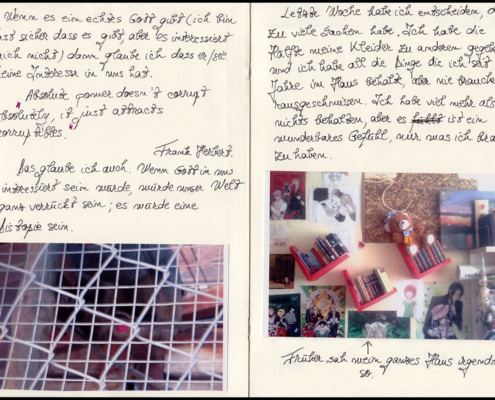 Wenn es ein echtes Gott gibt (ich bin
sicher dass es gibt, aber es interessiert
mich nicht) dann glaube ich dass er/sie
keine Interesse in uns hat.
Absolute power doesn't corrupt
absolutely, it just attracts
corruptibles.
Frank Herbert.
Das glaube ich auch. Wenn Gott in uns
interessiert sein würde, würde unser Welt
ganz verrückt sein; es würde eine
Distopie sein.
Letzte Woche habe ich entscheiden, d
zu viele Sachen habe. Ich habe die
Hälfte meine Kleider zu anderem gegeb
und ich habe all die Dinge die ich seit
Jahre im Haus behalte, aber nie brauch
rausgeschmissen. Ich habe viel mehr als
nichts behalten, aber es ist ein
wunderbares Gefühl, nur was ich bra
zu haben.
Früher sah mein ganzes Haus irgendw
so.